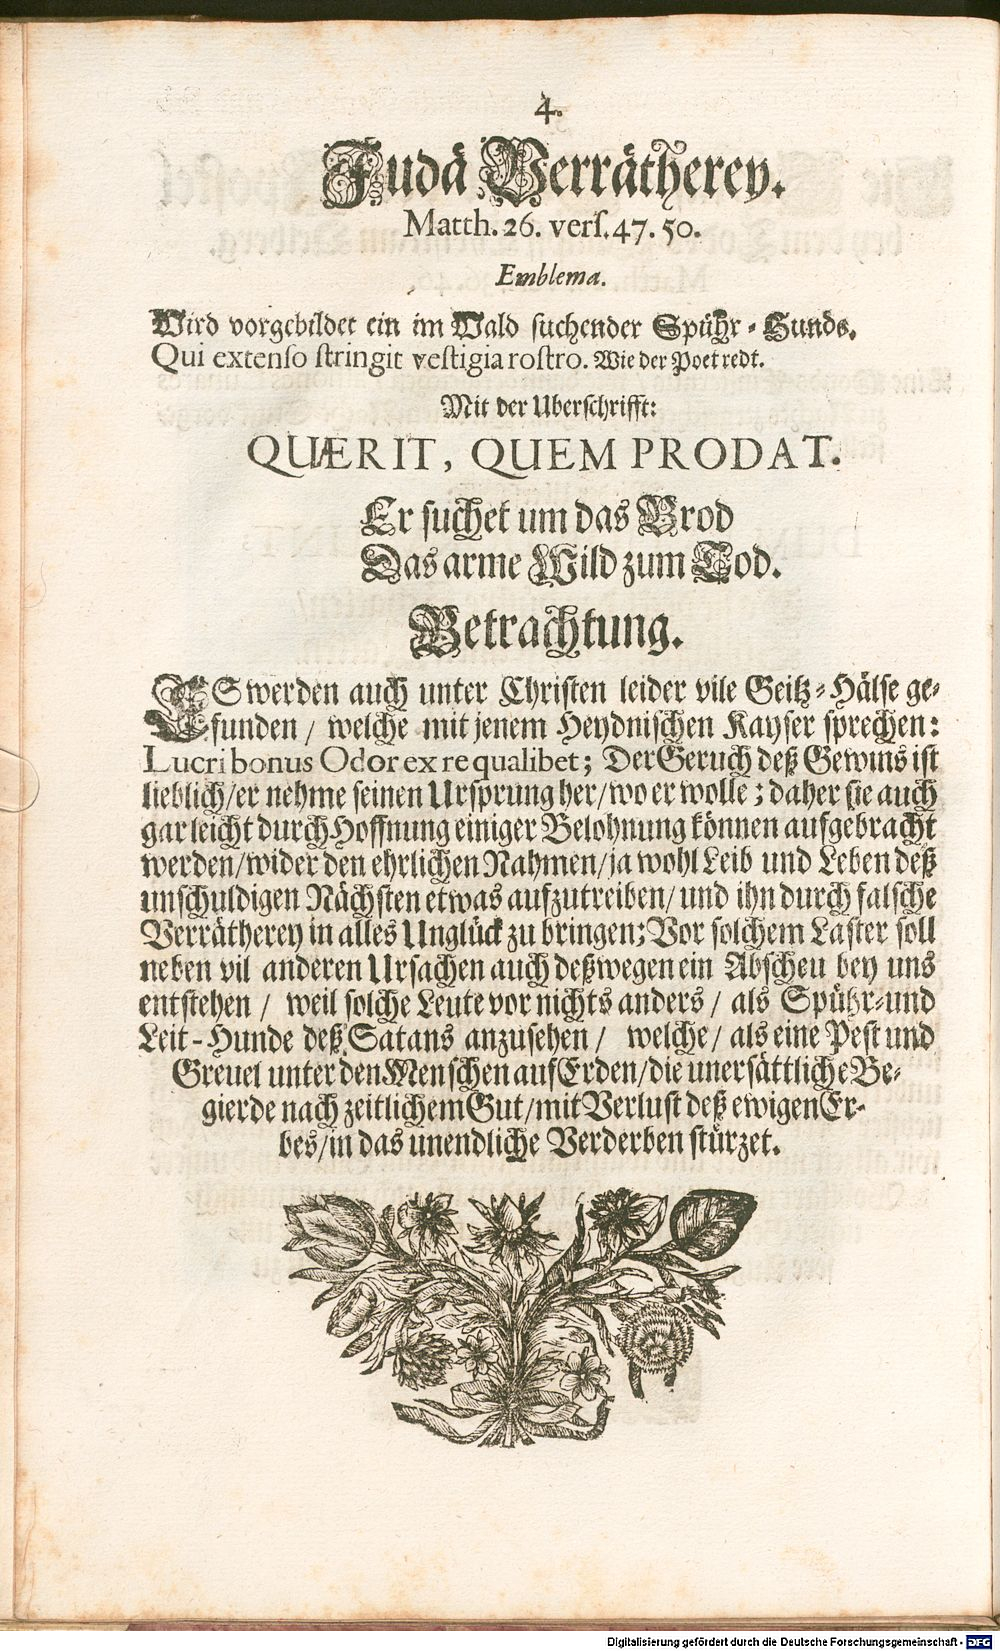 4.
Judä Verrätherey.
Matth. 26. vers. 47. 50.
Emblema.
Wird vorgebildet ein im Wald suchender Spühr-Hund.
Qui extenso stringit vestigia rostro. Wie der Poet redt.
Mit der Uberschrifft:
QUÆRIT, QUEM PRODAT.
Er suchet um das Brod
Das arme Wild zum Tod.
Betrachtung.
ES werden auch unter Christen leider vile Geitz-Hälse ge-
funden / welche mit jenem Heydnischen Kayser sprechen:
Lucri bonus Odor ex re qualibet; Der Geruch deß Gewins ist
lieblich/er nehme seinen Ursprung her/wo er wolle; daher sie auch
gar leicht durch Hoffnung einiger Belohnung können aufgebracht
werden/wider den ehrlichen Nahmen/ja wohl Leib und Leben deß
unschuldigen Nächsten etwas aufzutreiben/und ihn durch falsche
Verrätherey in alles Unglück zu bringen; Vor solchem Laster soll
neben vil anderen Ursachen auch deßwegen ein Abscheu bey uns
entstehen / weil solche Leute vor nichts anders / als Spühr-und
Leit-Hunde deß Satans anzusehen / welche/ als eine Pest und
Greuel unter den Menschen auf Erden/die unersättliche Be-
gierde nach zeitlichem Gut/mit Verlust deß ewigen Er-
bes/in das unendliche Verderben stürzet.
Digitalisierung gefördert durch die Deutsche Forschungsgemeinschaft - DFG